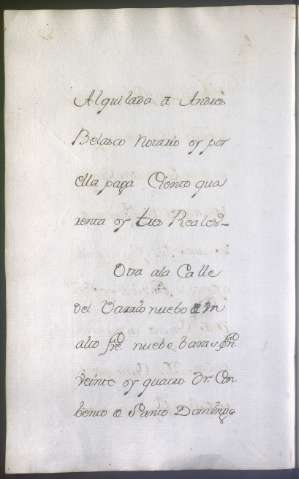 Alquilada a Andres
Belasco Notario y por
ella paga Ciento qua
renta y tres Reales
Otra a la Calle
del Barrio nuebo
alto fte. nuebe baras fdo.
veinte y quatro Dr. Con
bento de Santo Domingo